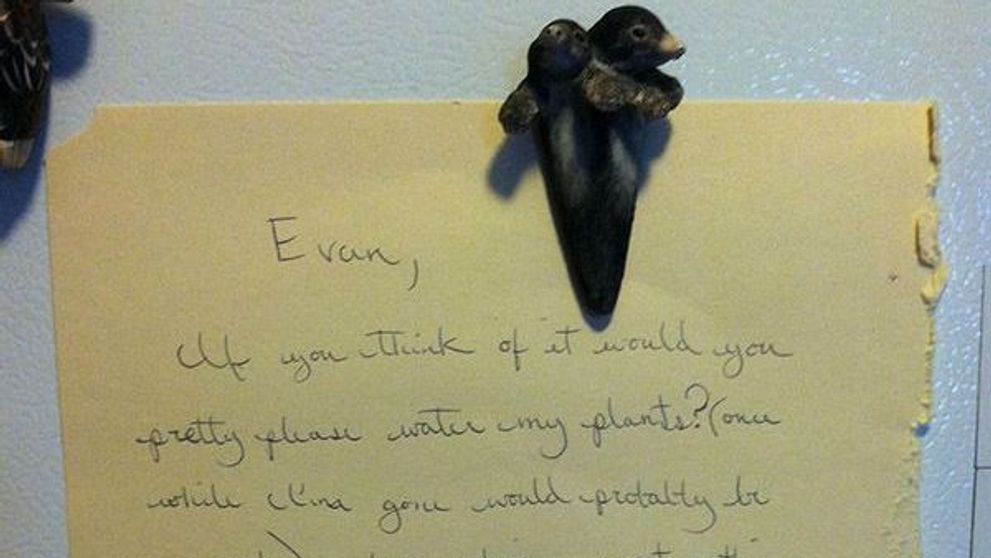 Evan,
If you think of it would you
pretty please water my plants? (once
while I'm gone would probably be